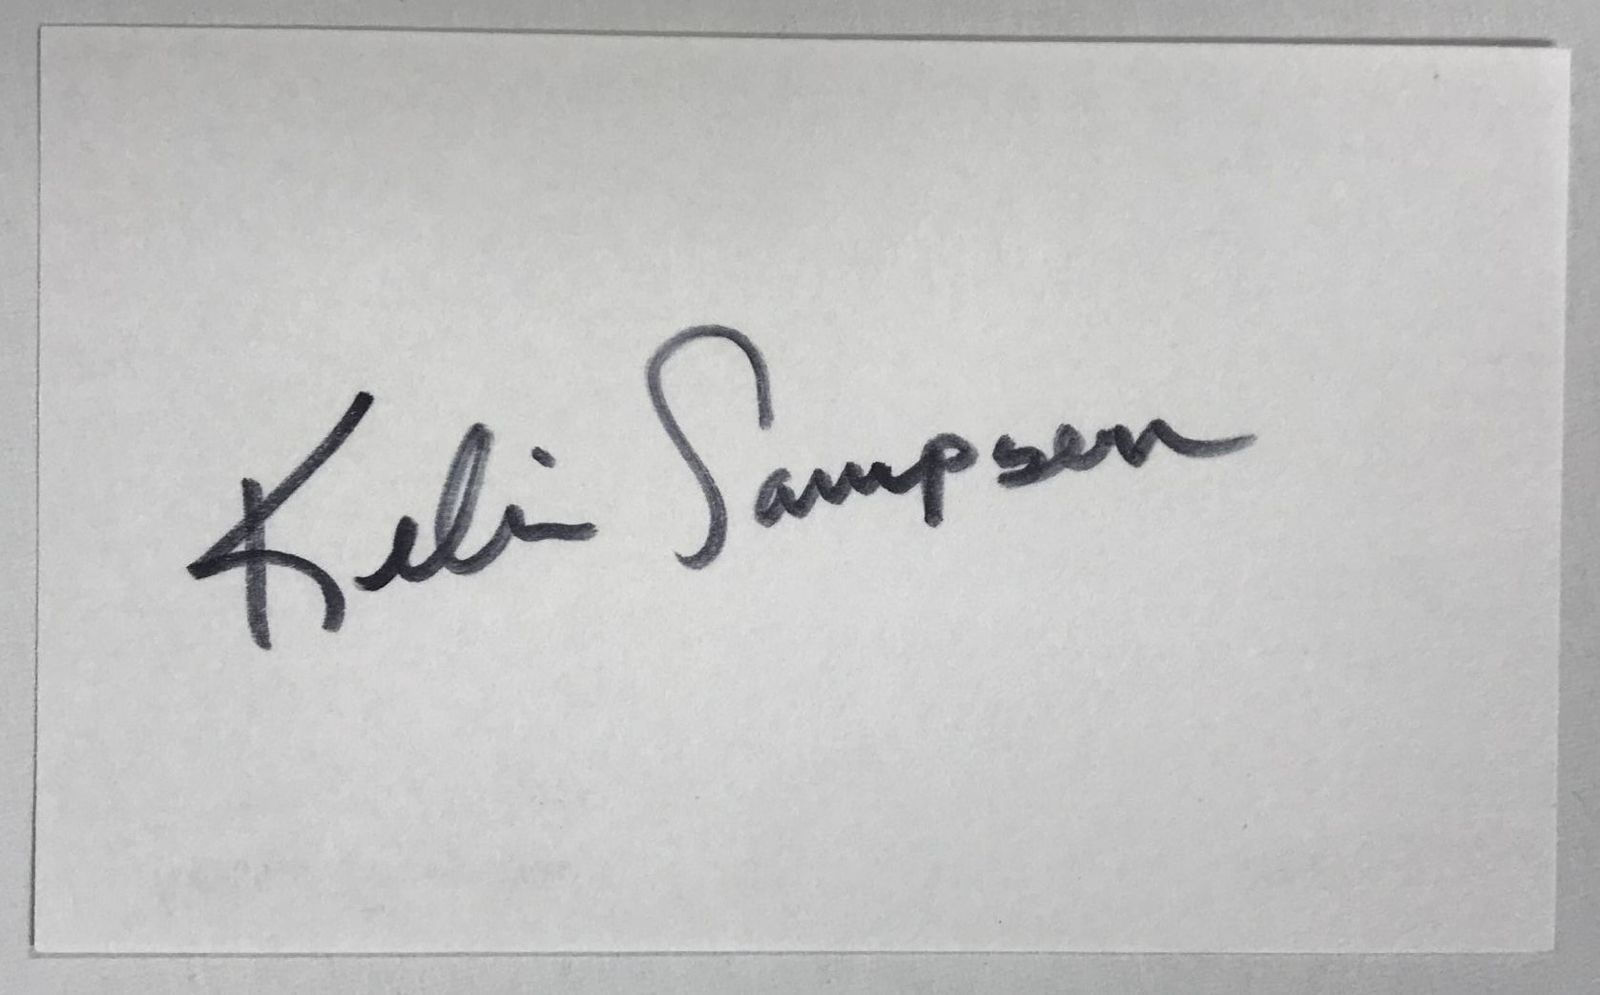 Kelvin Sampson